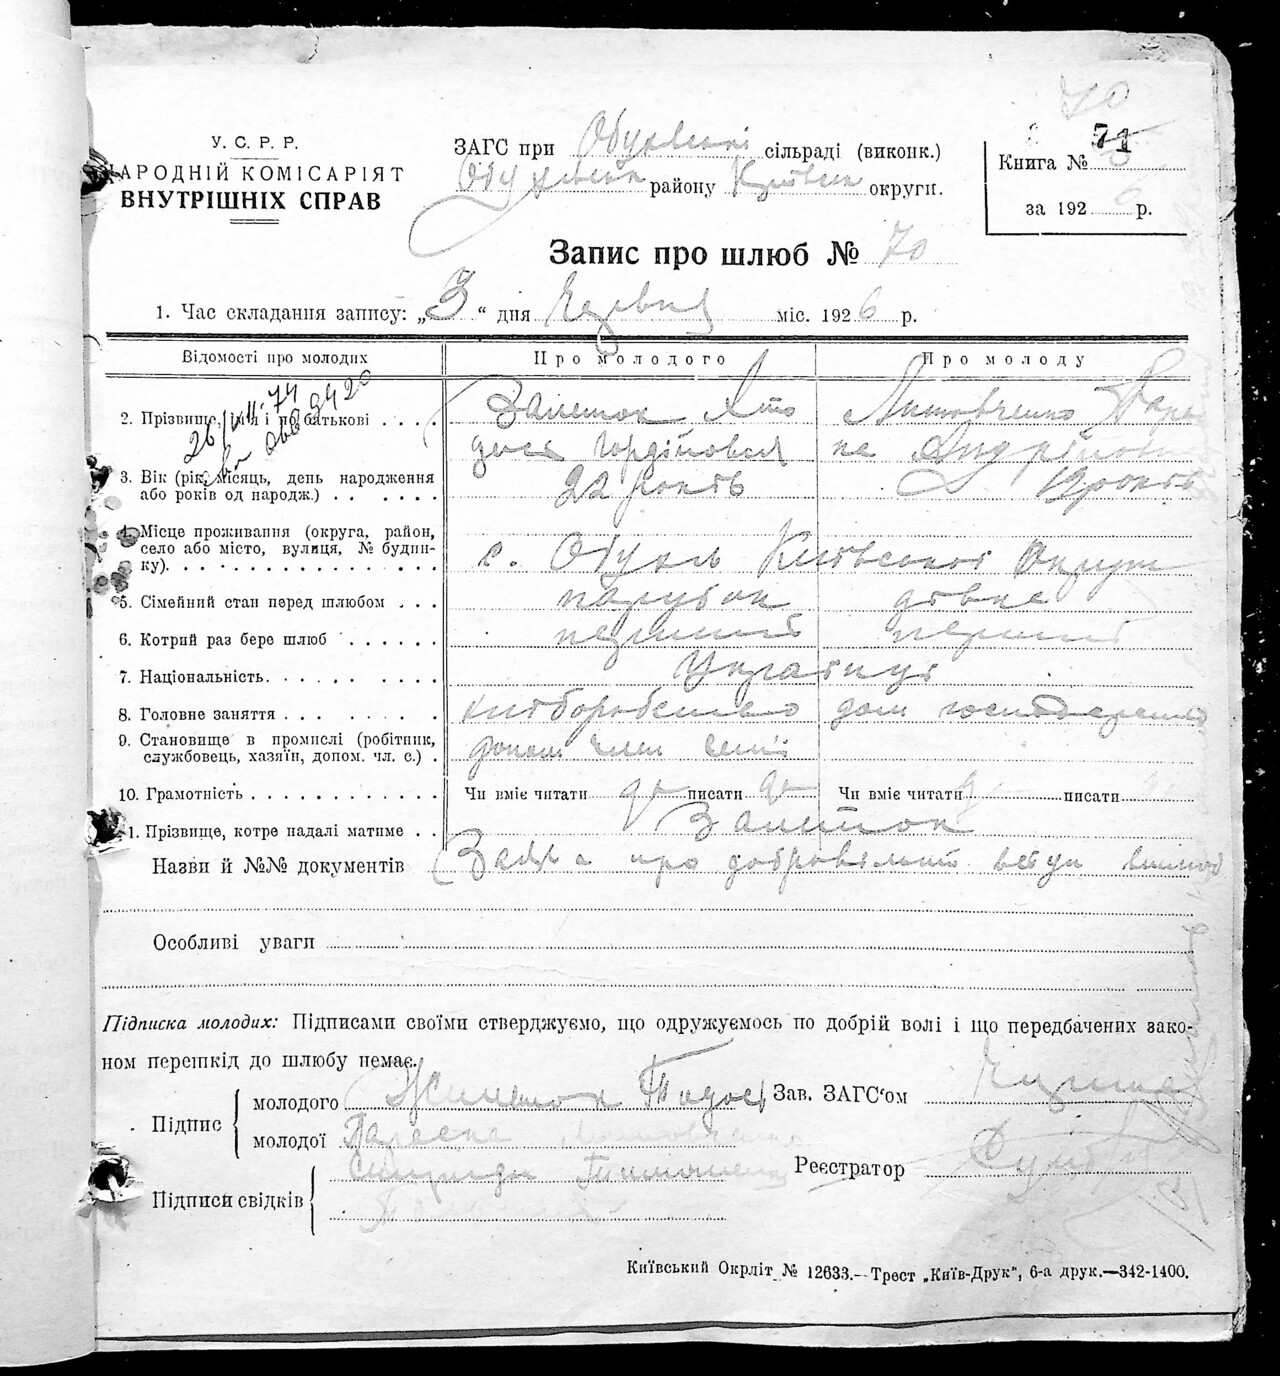 70
У. С. Р. Р.
НАРОДНІЙ КОМІСАРІЯТ
ВНУТРІШНІХ СПРАВ
ЗАГС при Обухівські сільраді (виконк.)
Обухівськ району Київськ округи.
Книга № 71
за 1926 р.
Запис про шлюб № 70
1. Час складання запису: „3“ дня Червня міс. 1926 р.
Відомості про молодих Про молодого Про молоду
2. Прізвище, ім'я і по батькові . . . . Литовченко Пара
гордійовся ска Андріївна
3. Вік (рік, місяць, день народження
або років од народж.) . . . . . . 22 років 19 років
4. Місце проживання (округа, район,
село або місто, вулиця, № будин-
ку). . . . . . . . . . . . . . . с. Обухів Київської Округи
5. Сімейний стан перед шлюбом . . . парубок дівка
6. Котрий раз бере шлюб . . . . . . перший перший
7. Національність. . . . . . . . . Українці
8. Головне заняття . . . . . . . . . хліборобство дом господарство
9. Становище в промислі (робітник,
службовець, хазяїн, допом. чл. с.) . допом член семї
10. Грамотність . . . . . . . . . . . . Чи вміє читати да писати да Чи вміє читати да писати
11. Прізвище, котре надалі матиме . .
Назви й №№ документів Заява про добровільний вступ
Особливі уваги
Підписка молодих: Підписами своїми стверджуємо, що одружуємось по добрій волі і що передбачених зако-
ном перешкід до шлюбу немає.
Підпис
молодого Тодос
молодої Параска Литовченко
Підписи свідків
Зав. ЗАГС'ом
Реєстратор
Київський Окрліт № 12633.—Трест „Київ-Друк", 6-а друк.—342-1400.